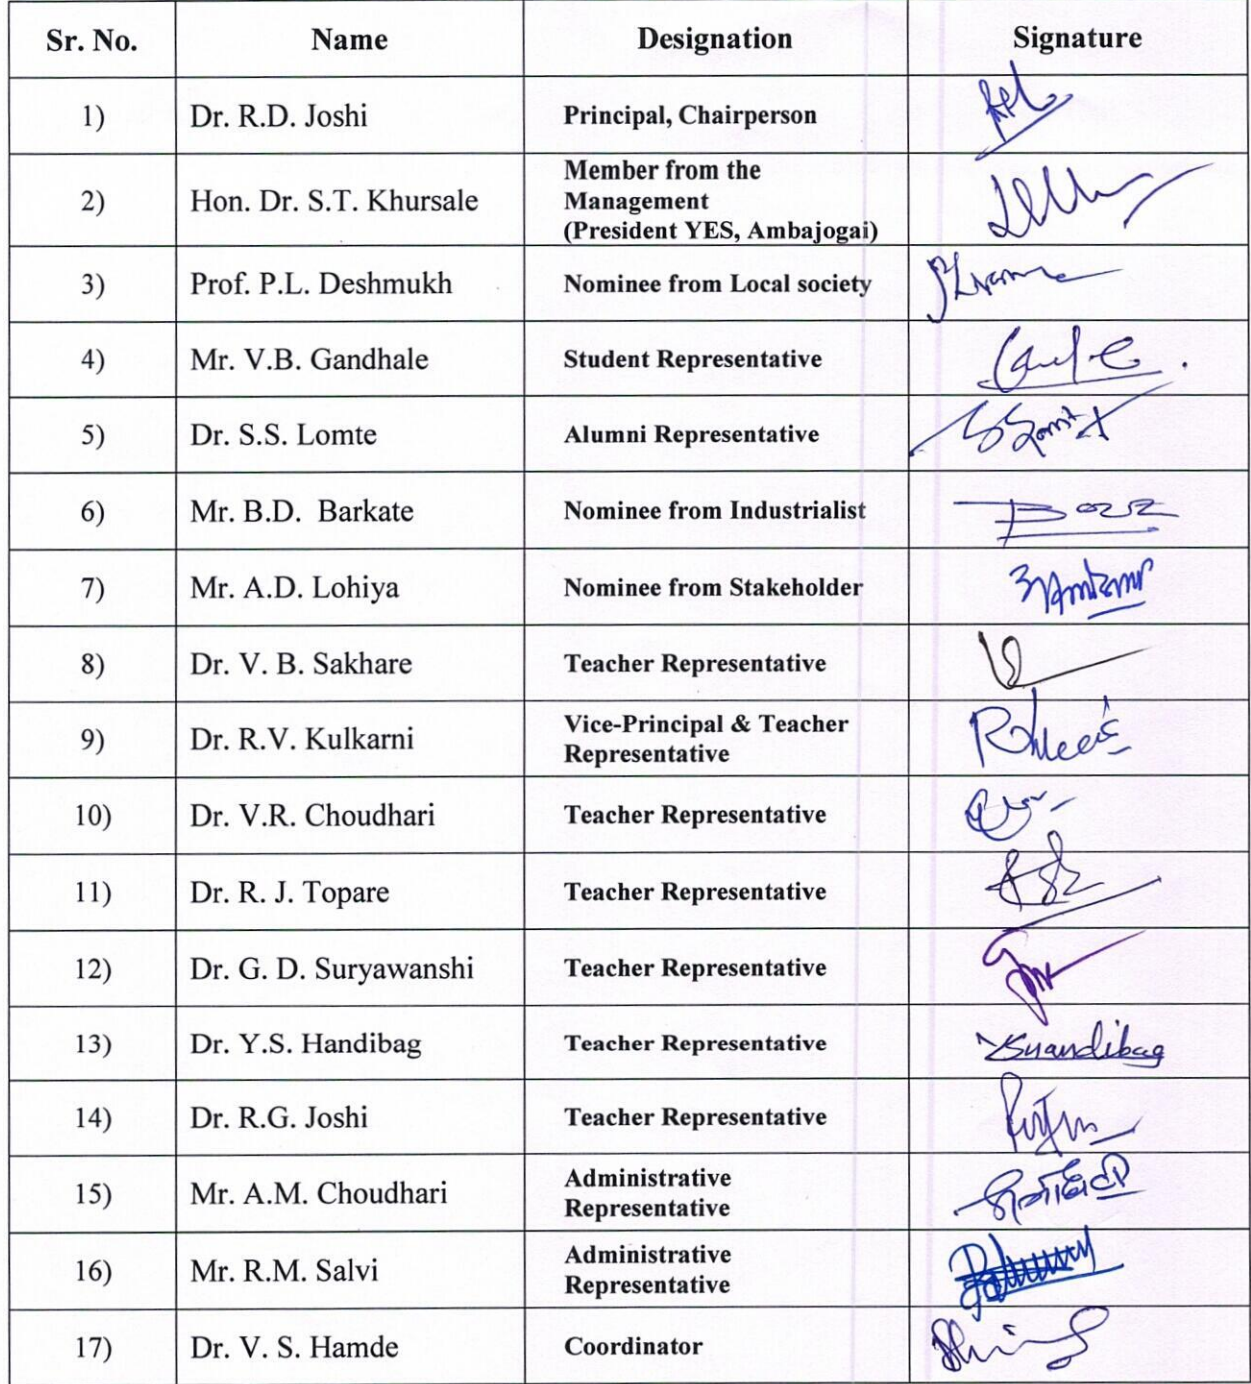 Sr. No. Name Designation Signature
1) Dr. R.D. Joshi Principal, Chairperson
2) Hon. Dr. S.T. Khursale Member from the
Management
(President YES, Ambajogai)
3) Prof. P.L. Deshmukh Nominee from Local society
4) Mr. V.B. Gandhale Student Representative
5) Dr. S.S. Lomte Alumni Representative
6) Mr. B.D. Barkate Nominee from Industrialist
7) Mr. A.D. Lohiya Nominee from Stakeholder
8) Dr. V. B. Sakhare Teacher Representative
9) Dr. R.V. Kulkarni Vice-Principal & Teacher
Representative
10) Dr. V.R. Choudhari Teacher Representative
11) Dr. R. J. Topare Teacher Representative
12) Dr. G. D. Suryawanshi Teacher Representative
13) Dr. Y.S. Handibag Teacher Representative
14) Dr. R.G. Joshi Teacher Representative
15) Mr. A.M. Choudhari Administrative
Representative
16) Mr. R.M. Salvi Administrative
Representative
17) Dr. V. S. Hamde Coordinator